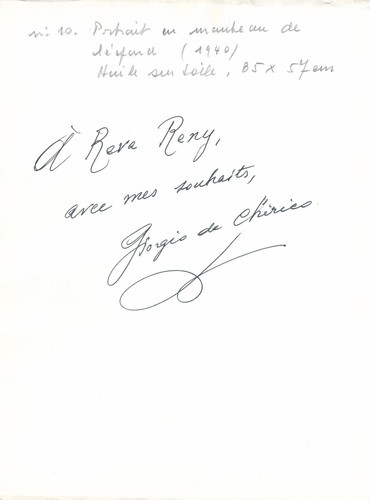 n: 10. Portrait en manteau de
léopard (1940)
Huile sur toile, 85 x 57 cms
À Reva Reny,
avec mes souhaits,
Giorgio de Chirico